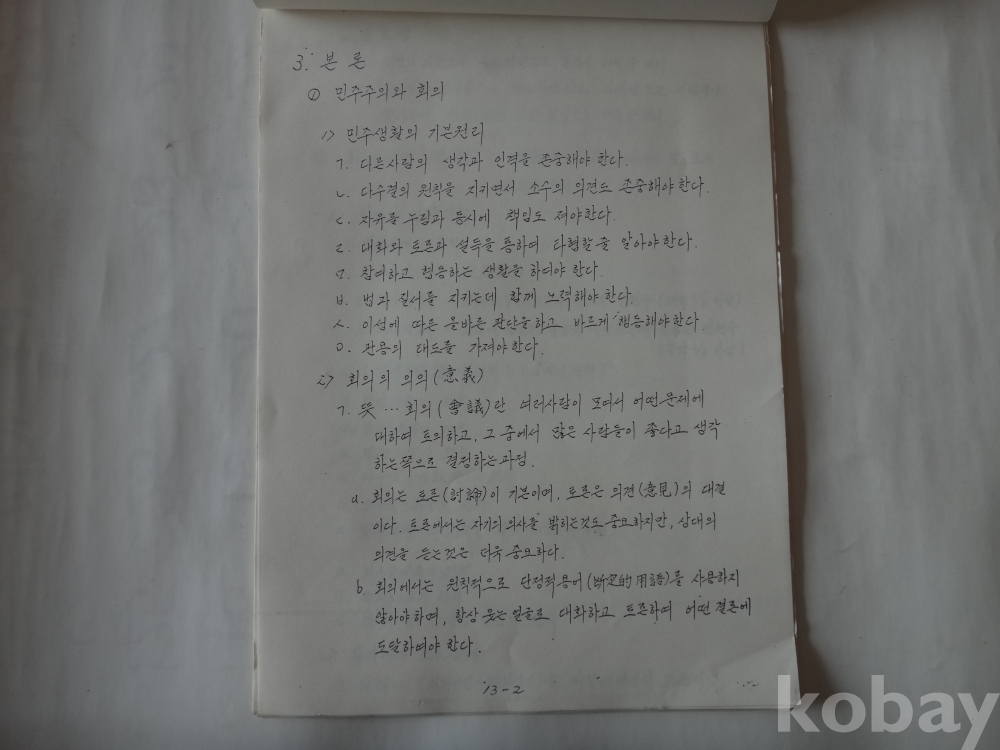 3. 본론
① 민주주의와 회의
1) 민주생활의 기본원리
ㄱ. 다른사람의 생각과 인격을 존중해야 한다.
ㄴ. 다수결의 원칙을 지키면서 소수의 의견도 존중해야 한다.
ㄷ. 자유를 누림과 동시에 책임도 져야한다.
ㄹ. 대화와 토론과 설득을 통하여 타협할 줄 알아야 한다.
ㅁ. 참여하고 협응하는 생활을 하여야 한다.
ㅂ. 법과 질서를 지키는데 함께 노력해야 한다.
ㅅ. 이성에 따른 올바른 판단을 하고 바르게 행동해야 한다
ㅇ. 관용의 태도를 가져야 한다.
2) 회의의 의의(意義)
ㄱ. 뜻 … 회의(會議)란 여러사람이 모여서 어떤 문제에
대하여 토의하고, 그 중에서 많은 사람들이 좋다고 생각
하는쪽으로 결정하는 과정.
a. 회의는 토론(討論)이 기본이며, 토론은 의견(意見)의 대결
이다. 토론에서는 자기의 의사를 밝히는것도 중요하지만, 상대의
의견을 듣는것은 더욱 중요하다.
b. 회의에서는 원칙적으로 단정적용어(斷定的用語)를 사용하지
않아야하며, 항상 웃는 얼굴로 대화하고 토론하여 어떤 결론에
도달하여야 한다.
13-2
kobay